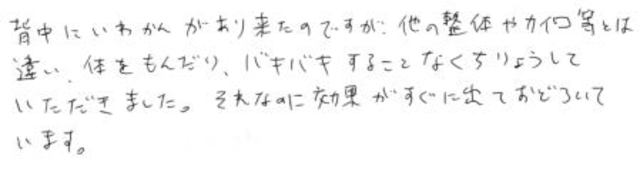 背中にいわかんがあり来たのですが、他の整体やカイロ等とは
違い、体をもんだり、バキバキすることなくちりょうして
いただきました。それなのに効果がすぐに出ておどろいて
います。